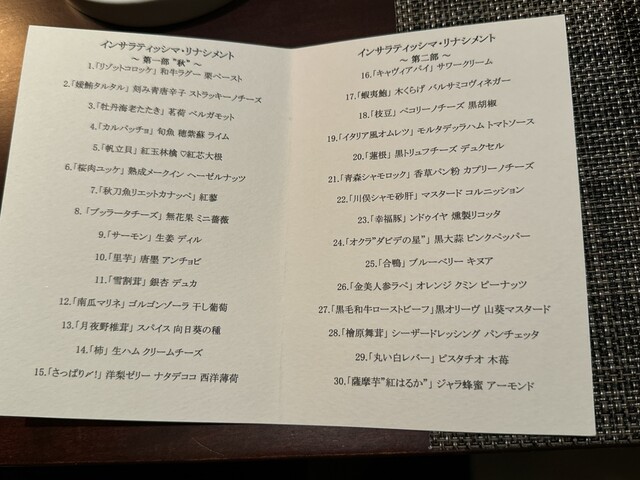 インサラティッシマ・リナシメント
～ 第一部 "秋" ～
1.「リゾットコロッケ」 和牛ラグー 栗ペースト
2.「嫒鮪タルタル」 刻み青唐辛子 ストラッキーノチーズ
3.「牡丹海老たたき」 茗荷 ベルガモット
4.「カルパッチョ」 旬魚 穂紫蘇 ライム
5.「帆立貝」 紅玉林檎 ♡紅芯大根
6.「桜肉ユッケ」 熟成メークイン ヘーゼルナッツ
7.「秋刀魚リエットカナッペ」 紅蓼
8.「ブッラータチーズ」 無花果 ミニ薔薇
9.「サーモン」 生姜 ディル
10.「里芋」 唐墨 アンチョビ
11.「雪割茸」 銀杏 デュカ
12.「南瓜マリネ」 ゴルゴンゾーラ 干し葡萄
13.「月夜野椎茸」 スパイス 向日葵の種
14.「柿」 生ハム クリームチーズ
15.「さっぱり〆!」 洋梨ゼリー ナタデココ 西洋薄荷
インサラティッシマ・リナシメント
～ 第二部 ～
16.「キャヴィアパイ」 サワークリーム
17.「蝦夷鮑」 木くらげ バルサミコヴィネガー
18.「枝豆」 ペコリーノチーズ 黒胡椒
19.「イタリア風オムレツ」 モルタデッラハム トマトソース
20.「蓮根」 黒トリュフチーズ デュクセル
21.「青森シャモロック」 香草パン粉 カプリーノチーズ
22.「川俣シャモ砂肝」 マスタード コルニッション
23.「幸福豚」 ンドゥイヤ 燻製リコッタ
24.「オクラ"ダビデの星"」 黒大蒜 ピンクペッパー
25.「合鴨」 ブルーベリー キヌア
26.「金美人参ラペ」 オレンジ クミン ピーナッツ
27.「黒毛和牛ローストビーフ」 黒オリーヴ 山葵マスタード
28.「檜原舞茸」 シーザードレッシング パンチェッタ
29.「丸い白レバー」 ピスタチオ 木苺
30.「薩摩芋"紅はるか"」 ジャラ蜂蜜 アーモンド